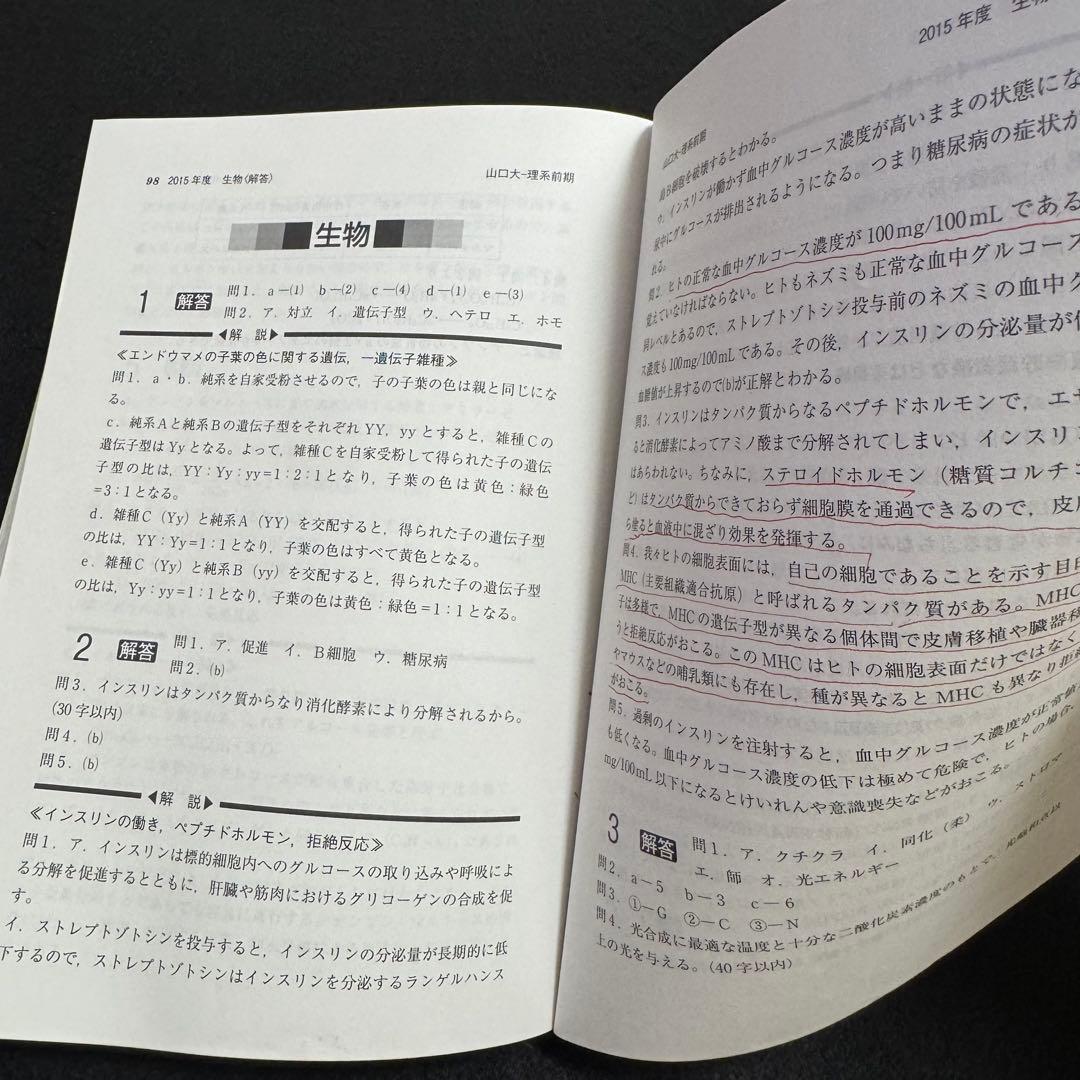 98 2015年度 生物〈解答〉
山口大-理系前期
生物
1 解答 問1．a―⑴ b―⑵ c―⑷ d―⑴ e―⑶
問2．ア．対立 イ．遺伝子型 ウ．ヘテロ エ．ホモ
◀解 説▶
≪エンドウマメの子葉の色に関する遺伝，一遺伝子雑種≫
問1．a・b．純系を自家受粉させるので，子の子葉の色は親と同じにな
る。
c．純系Aと純系Bの遺伝子型をそれぞれYY，yyとすると，雑種Cの
遺伝子型はYyとなる。よって，雑種Cを自家受粉して得られた子の遺伝
子型の比は，YY：Yy：yy＝1：2：1となり，子葉の色は黄色：緑色
＝3：1となる。
d．雑種C（Yy）と純系A（YY）を交配すると，得られた子の遺伝子型
の比は，YY：Yy＝1：1となり，子葉の色はすべて黄色となる。
e．雑種C（Yy）と純系B（yy）を交配すると，得られた子の遺伝子型
の比は，Yy：yy＝1：1となり，子葉の色は黄色：緑色＝1：1となる。
2 解答 問1．ア．促進 イ．B細胞 ウ．糖尿病
問2．(b)
問3．インスリンはタンパク質からなり消化酵素により分解されるから。
(30字以内)
問4．(b)
問5．(b)
◀解 説▶
≪インスリンの働き，ペプチドホルモン，拒絶反応≫
問1．ア．インスリンは標的細胞内へのグルコースの取り込みや呼吸によ
る分解を促進するとともに，肝臓や筋肉におけるグリコーゲンの合成を促
す。
イ．ストレプトゾトシンを投与すると，インスリンの分泌量が長期的に低
下するので，ストレプトゾトシンはインスリンを分泌するランゲルハンス
2015年度 生物
山口大-理系前期
島B細胞を破壊するとわかる。
ウ．インスリンが働かず血中グルコース濃度が高いままの状態にな
尿中にグルコースが排出されるようになる。つまり糖尿病の症状が
れる。
問2．ヒトの正常な血中グルコース濃度が100mg/100mLである
覚えていなければならない。ヒトもネズミも正常な血中グルコース
同レベルとあるので，ストレプトゾトシン投与前のネズミの血中グ
ス濃度も100mg/100mLである。その後，インスリンの分泌量が低
血糖値が上昇するので(b)が正解とわかる。
問3．インスリンはタンパク質からなるペプチドホルモンで，エサ
ると消化酵素によってアミノ酸まで分解されてしまい，インスリ
はあらわれない。ちなみに，ステロイドホルモン（糖質コルチコ
ド）はタンパク質からできておらず細胞膜を通過できるので，皮膚
ら塗ると血液中に混ざり効果を発揮する。
問4．我々ヒトの細胞表面には，自己の細胞であることを示す目印
MHC（主要組織適合抗原）と呼ばれるタンパク質がある。MHC
子は多様で，MHCの遺伝子型が異なる個体間で皮膚移植や臓器移
うと拒絶反応がおこる。このMHCはヒトの細胞表面だけではなく
やマウスなどの哺乳類にも存在し，種が異なるとMHCも異なり拒絶
がおこる。
問5．過剰のインスリンを注射すると，血中グルコース濃度が正常値
も低くなる。血中グルコース濃度の低下は極めて危険で，ヒトの場合，
mg/100mL以下になるとけいれんや意識喪失などがおこる。
3 解答 問1．ア．クチクラ イ．同化（柔） ウ．ストロマ
エ．師 オ．光エネルギー
問2．a－5 b－3 c－6
問3．①―G ②―C ③―N
問4．光合成に最適な温度と十分な二酸化炭素濃度のもとで，光飽和点以
上の光を与える。(40字以内)